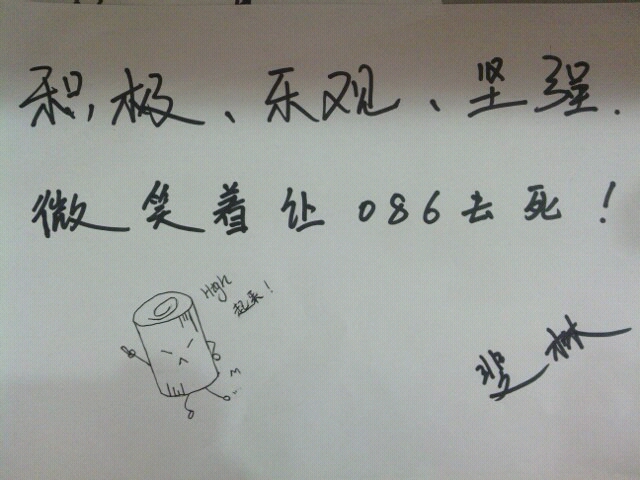 积极、乐观、坚强.
微笑着让086去死!
High
起来!